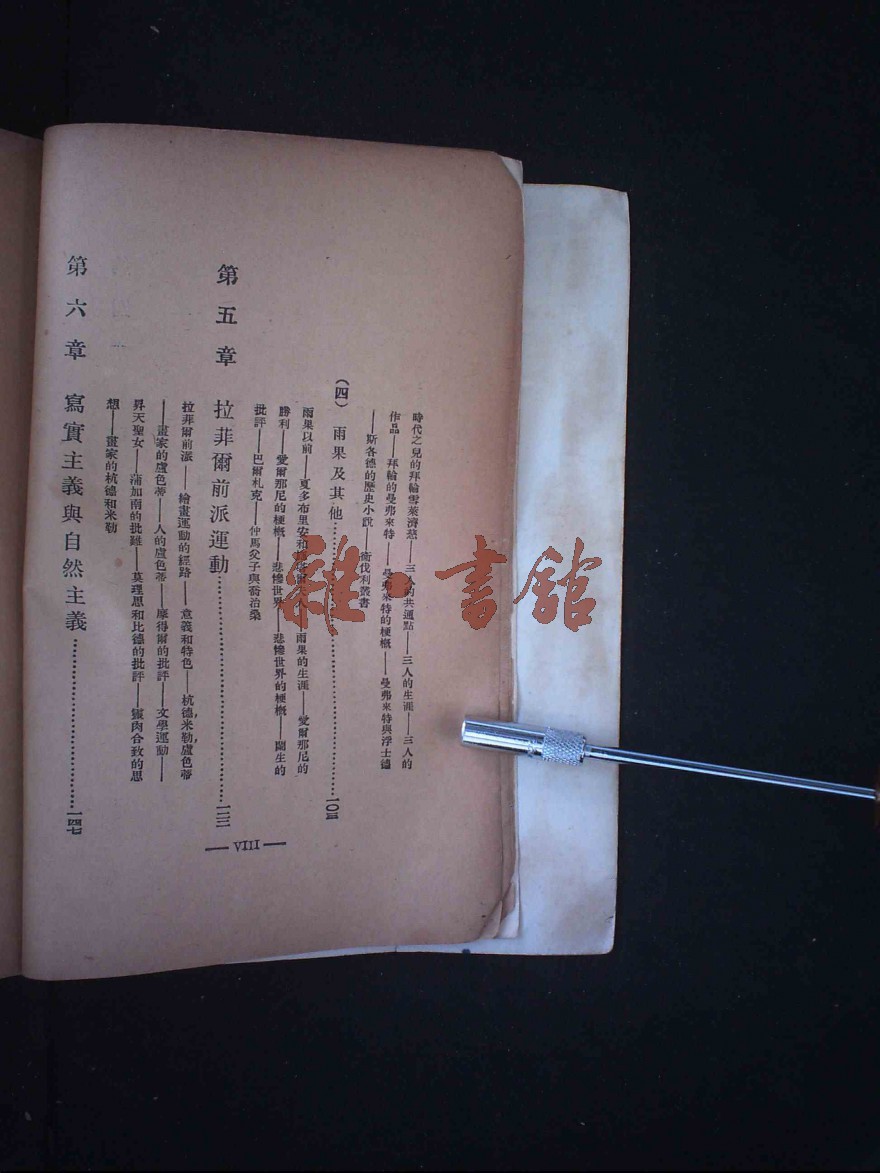 時代之兒的拜輪雪萊濟慈——三人的共通點——三人的生涯——三人的
作品——拜輪的曼弗來特——曼弗來特的梗概——曼弗來特與浮士德
——斯各德的歷史小說——衞伐利叢書
(四) 雨果及其他…………一〇四
雨果以前——夏多布里安和　　　　　——雨果的生涯——愛爾那尼的
勝利——愛爾那尼的梗概——悲慘世界——悲慘世界的梗概——囂生的
批評——巴爾札克——仲馬父子與喬治桑
第五章 拉菲爾前派運動…………一二二
拉菲爾前派——繪畫運動的經路——意義和特色——杭德,米勒,盧色蒂
——畫家的盧色蒂——人的盧色蒂——摩得爾的批評——文學運動——
昇天聖女——蒲加南的批難——莫理思和比德的批評——靈肉合致的思
想——畫家的杭德和米勒
第六章 寫實主義與自然主義…………一四七
— VIII —
雜·書館